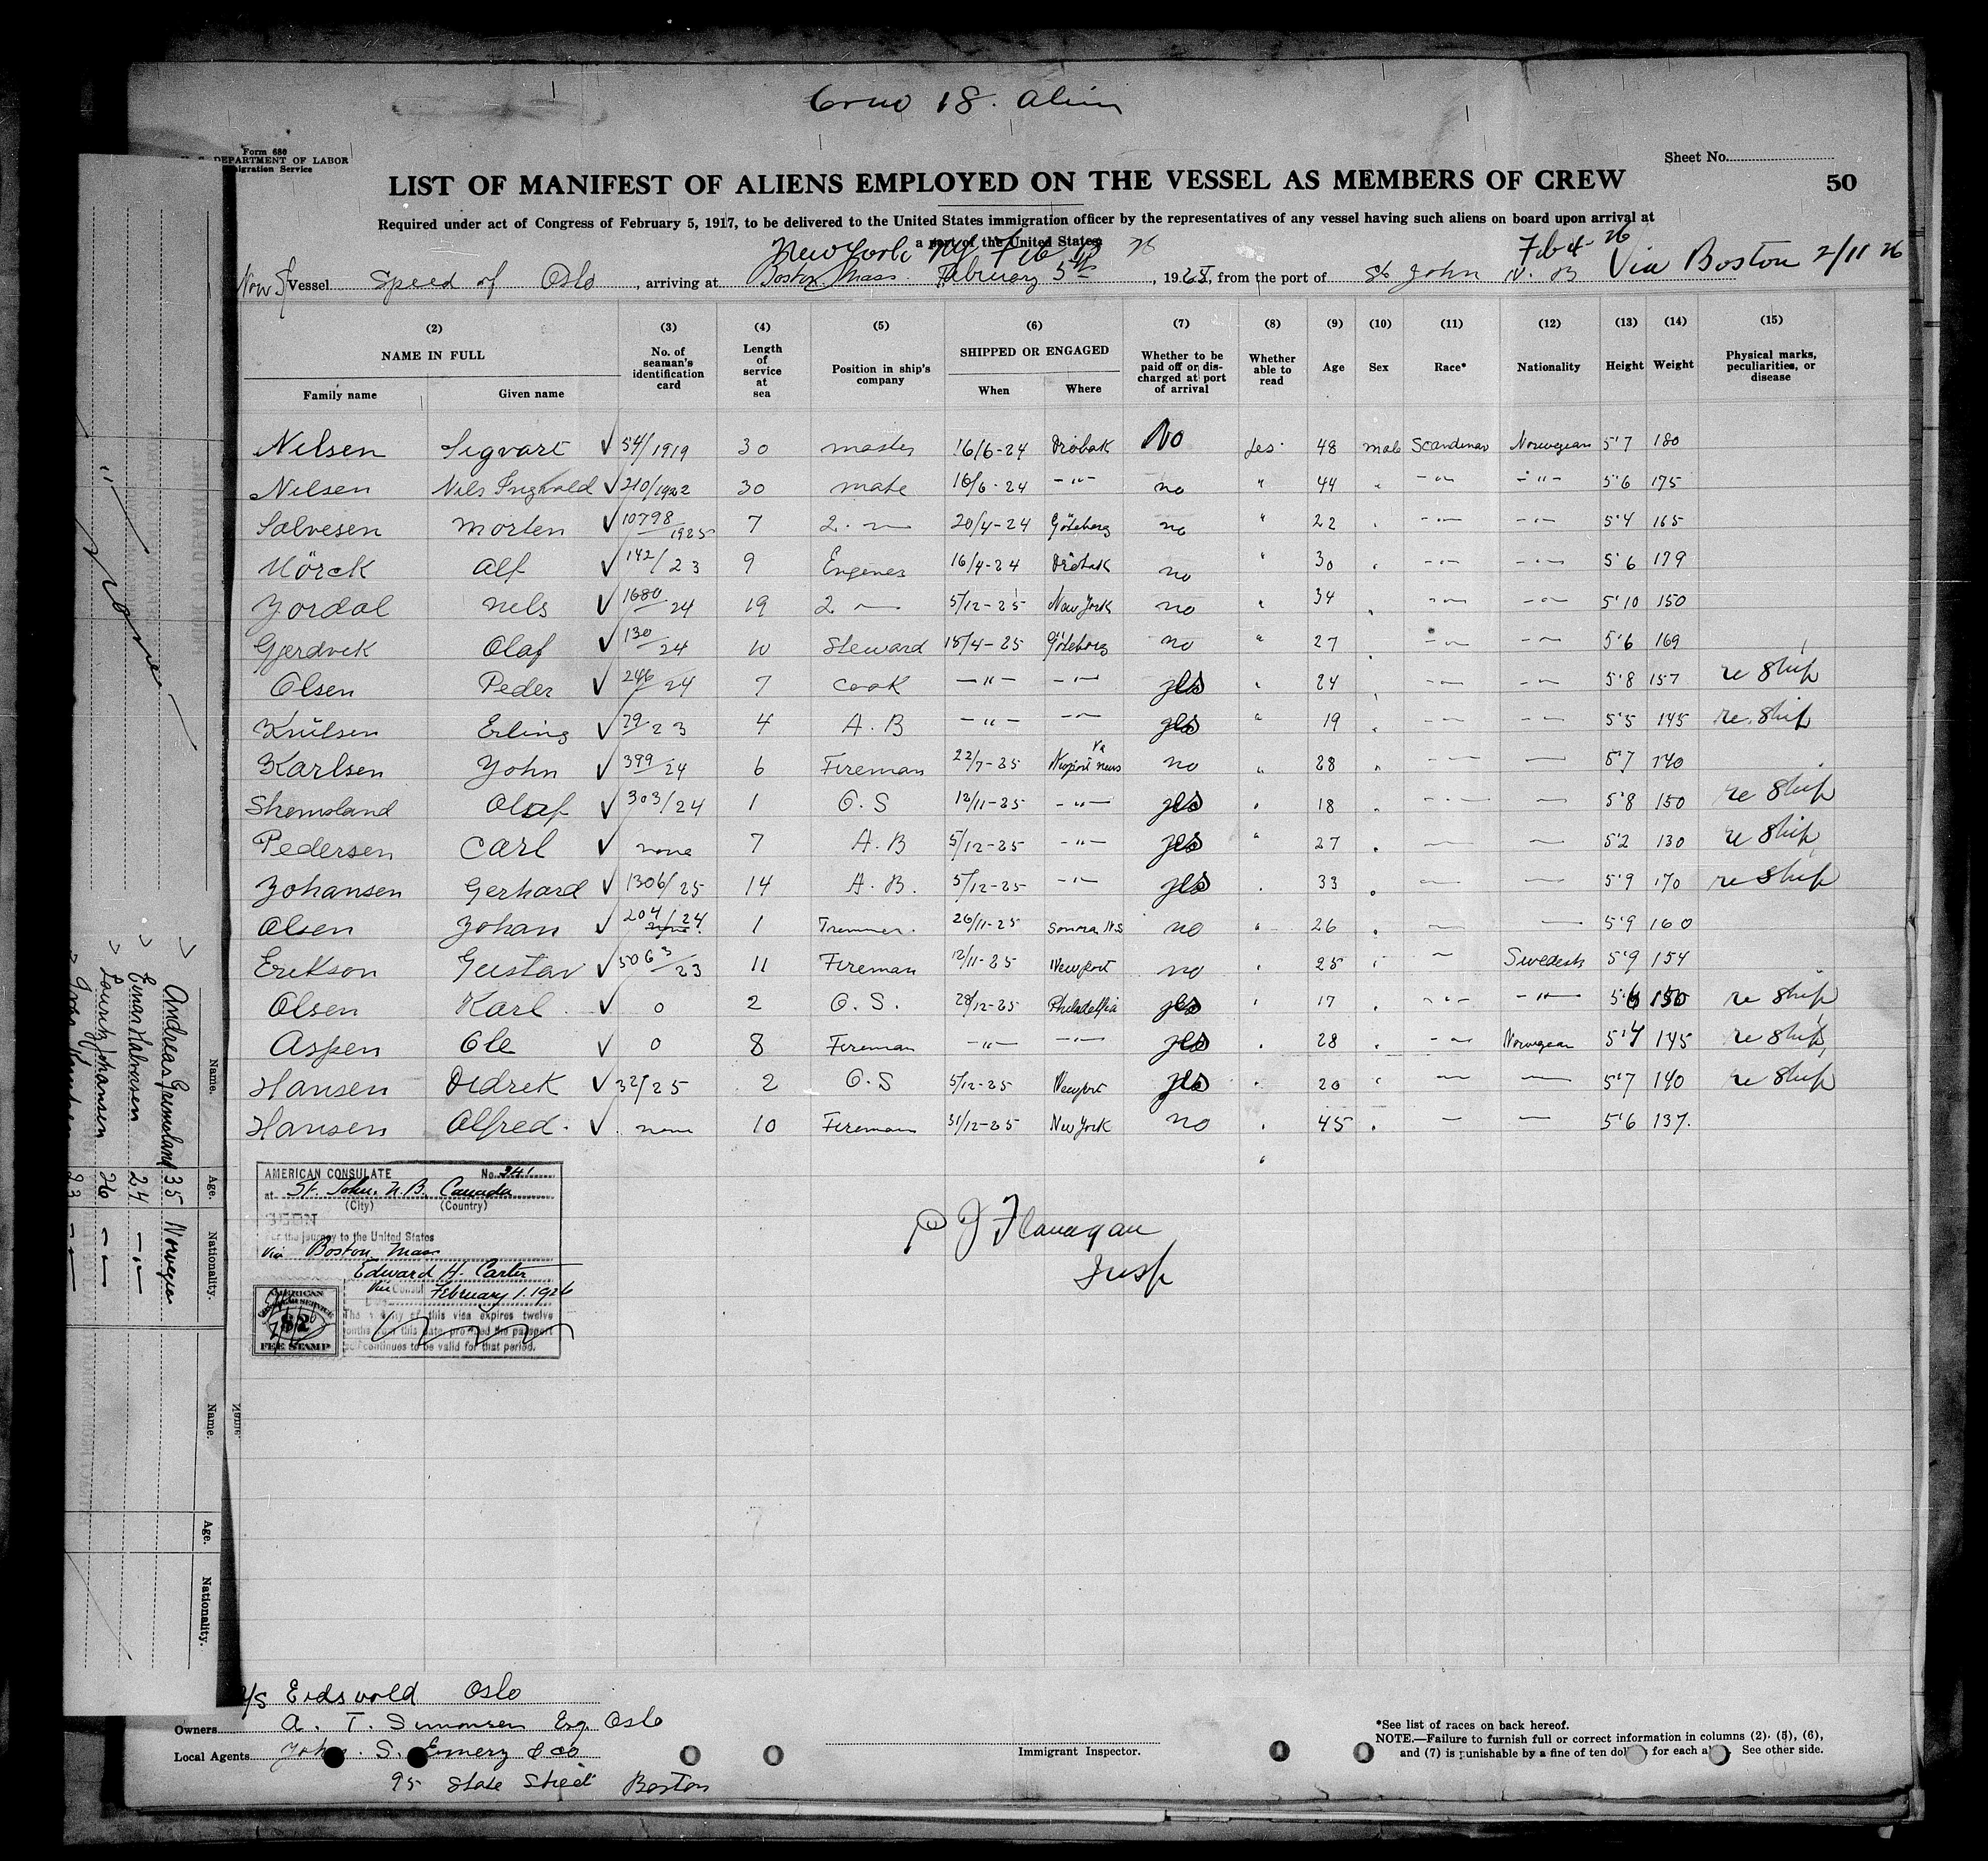 Crew 18. Alien
Form 680
U. S. DEPARTMENT OF LABOR
Immigration Service
Sheet No.
LIST OF MANIFEST OF ALIENS EMPLOYED ON THE VESSEL AS MEMBERS OF CREW
50
Required under act of Congress of February 5, 1917, to be delivered to the United States immigration officer by the representatives of any vessel having such aliens on board upon arrival at
a port of the United States
New York NY Feb 26
Feb 4- 26
Vessel Speed of Oslo, arriving at Boston Mass. February 5th, 192, from the port of St John N. B Via Boston 2/11 26
(2) (3) (4) (5) (6) (7) (8) (9) (10) (11) (12) (13) (14) (15)
NAME IN FULL No. of seaman's identification card Length of service at sea Position in ship's company SHIPPED OR ENGAGED Whether to be paid off or discharged at port of arrival Whether able to read Age Sex Race* Nationality Height Weight Physical marks, peculiarities, or disease
Family name Given name When Where
Nilsen Sigvart √ 54/1919 30 master 16/6-24 Dröbak No yes 48 male Scandinav Norwegian 5'7 180
Nilsen Nils Ingvald √ 210/1922 30 mate 16/6-24 -"- no " 44 " -"- -"- 5'6 175
Salvesen Morten √ 10798/1925 7 2. -"- 20/4-24 Göteborg no " 22 . -"- -"- 5'4 165
Mörck Alf √ 142/23 9 Engener 16/4-24 Dröbak no " 30 . -"- -"- 5'6 179
Jordal Nels √ 1680/24 19 2 -"- 5/12-25 New York no " 34 . -"- -"- 5'10 150
Gjerdvik Olaf √ 130/24 10 Steward 18/4-25 Göteborg no " 27 . -"- -"- 5'6 169
Olsen Peder √ 246/24 7 Cook -"- -"- yes " 24 . -"- -"- 5'8 157 re ship
Knutsen Erling √ 79/23 4 A.B -"- -"- yes " 19 . -"- -"- 5'5 145 re ship
Karlsen John √ 399/24 6 Fireman 22/7-25 Newport news Va no " 28 . -"- -"- 5'7 140
Skemsland Olaf √ 303/24 1 O.S 12/11-25 -"- yes " 18 . -"- — 5'8 150 re ship
Pedersen Carl √ none 7 A.B 5/12-25 -"- yes " 27 . — — 5'2 130 re ship
Johansen Gerhard √ 1306/25 14 A.B. 5/12-25 -"- yes . 33 . — — 5'9 170 re ship
Olsen Johan √ 204/24 1 Tremmer. 26/11-25 no " 26 . — — 5'9 160
Erikson Gustav √ 5063/23 11 Fireman 12/11-25 Newport no . 25 . — Swedesh 5'9 154
Olsen Karl √ 0 2 O.S. 28/12-25 Philadelfia yes " 17 . -"- -"- 5'6 150 re ship
Aspen Ole √ 0 8 Fireman -"- -"- yes . 28 . -"- Norwegean 5'4 145 re ship
Hansen Didrek √ 32/25 2 O.S 5/12-25 Newport yes . 20 . — — 5'7 140 re ship
Hansen Alfred. √ none 10 Fireman 31/12-25 New York no . 45 . — — 5'6 137.
AMERICAN CONSULATE No. 341
at St. John. N.B. Canada
(City) (Country)
SEEN
For the journey to the United States
via Boston, Mass
Edward H. Carter
Vice Consul
February 1. 1926
The validity of this visa expires twelve
months from this date provided the passport
continues to be valid for that period.
AMERICAN
CONSULAR SERVICE
$2
FEE STAMP
P J Flanagan
Insp
Name. Age. Nationality.
Andreas Gremsland 35 Norwegian
Einar Halvorsen 24 -"-
Lauritz Johansen 26 -"-
23 -"-
none
Name. Age. Nationality.
Eidsvold Oslo
Owners A. T. Simonsen Esq. Oslo
Local Agents John. S. Emery & co
95 State Street Boston
Immigrant Inspector.
*See list of races on back hereof.
NOTE.—Failure to furnish full or correct information in columns (2). (5), (6),
and (7) is punishable by a fine of ten dollars for each alien. See other side.